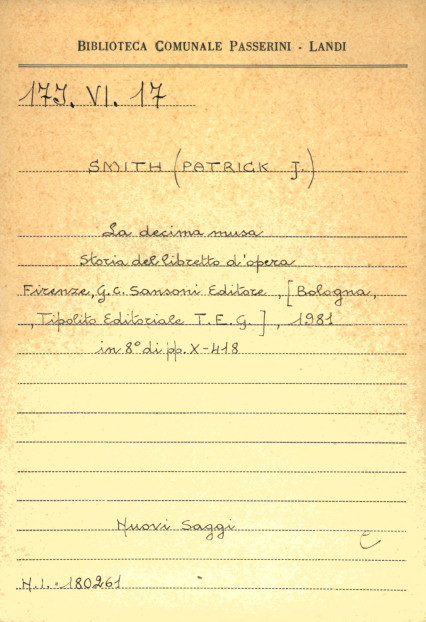 BIBLIOTECA COMUNALE PASSERINI - LANDI
17J. VI. 17
SMITH (PATRICK J.)
La decima musa
Storia del libretto d'opera
Firenze, G.C. Sansoni Editore, [Bologna,
, Tipolito Editoriale T.E.G.], 1981
in 8° di pp. X-418
Nuovi Saggi
N.I. = 180261